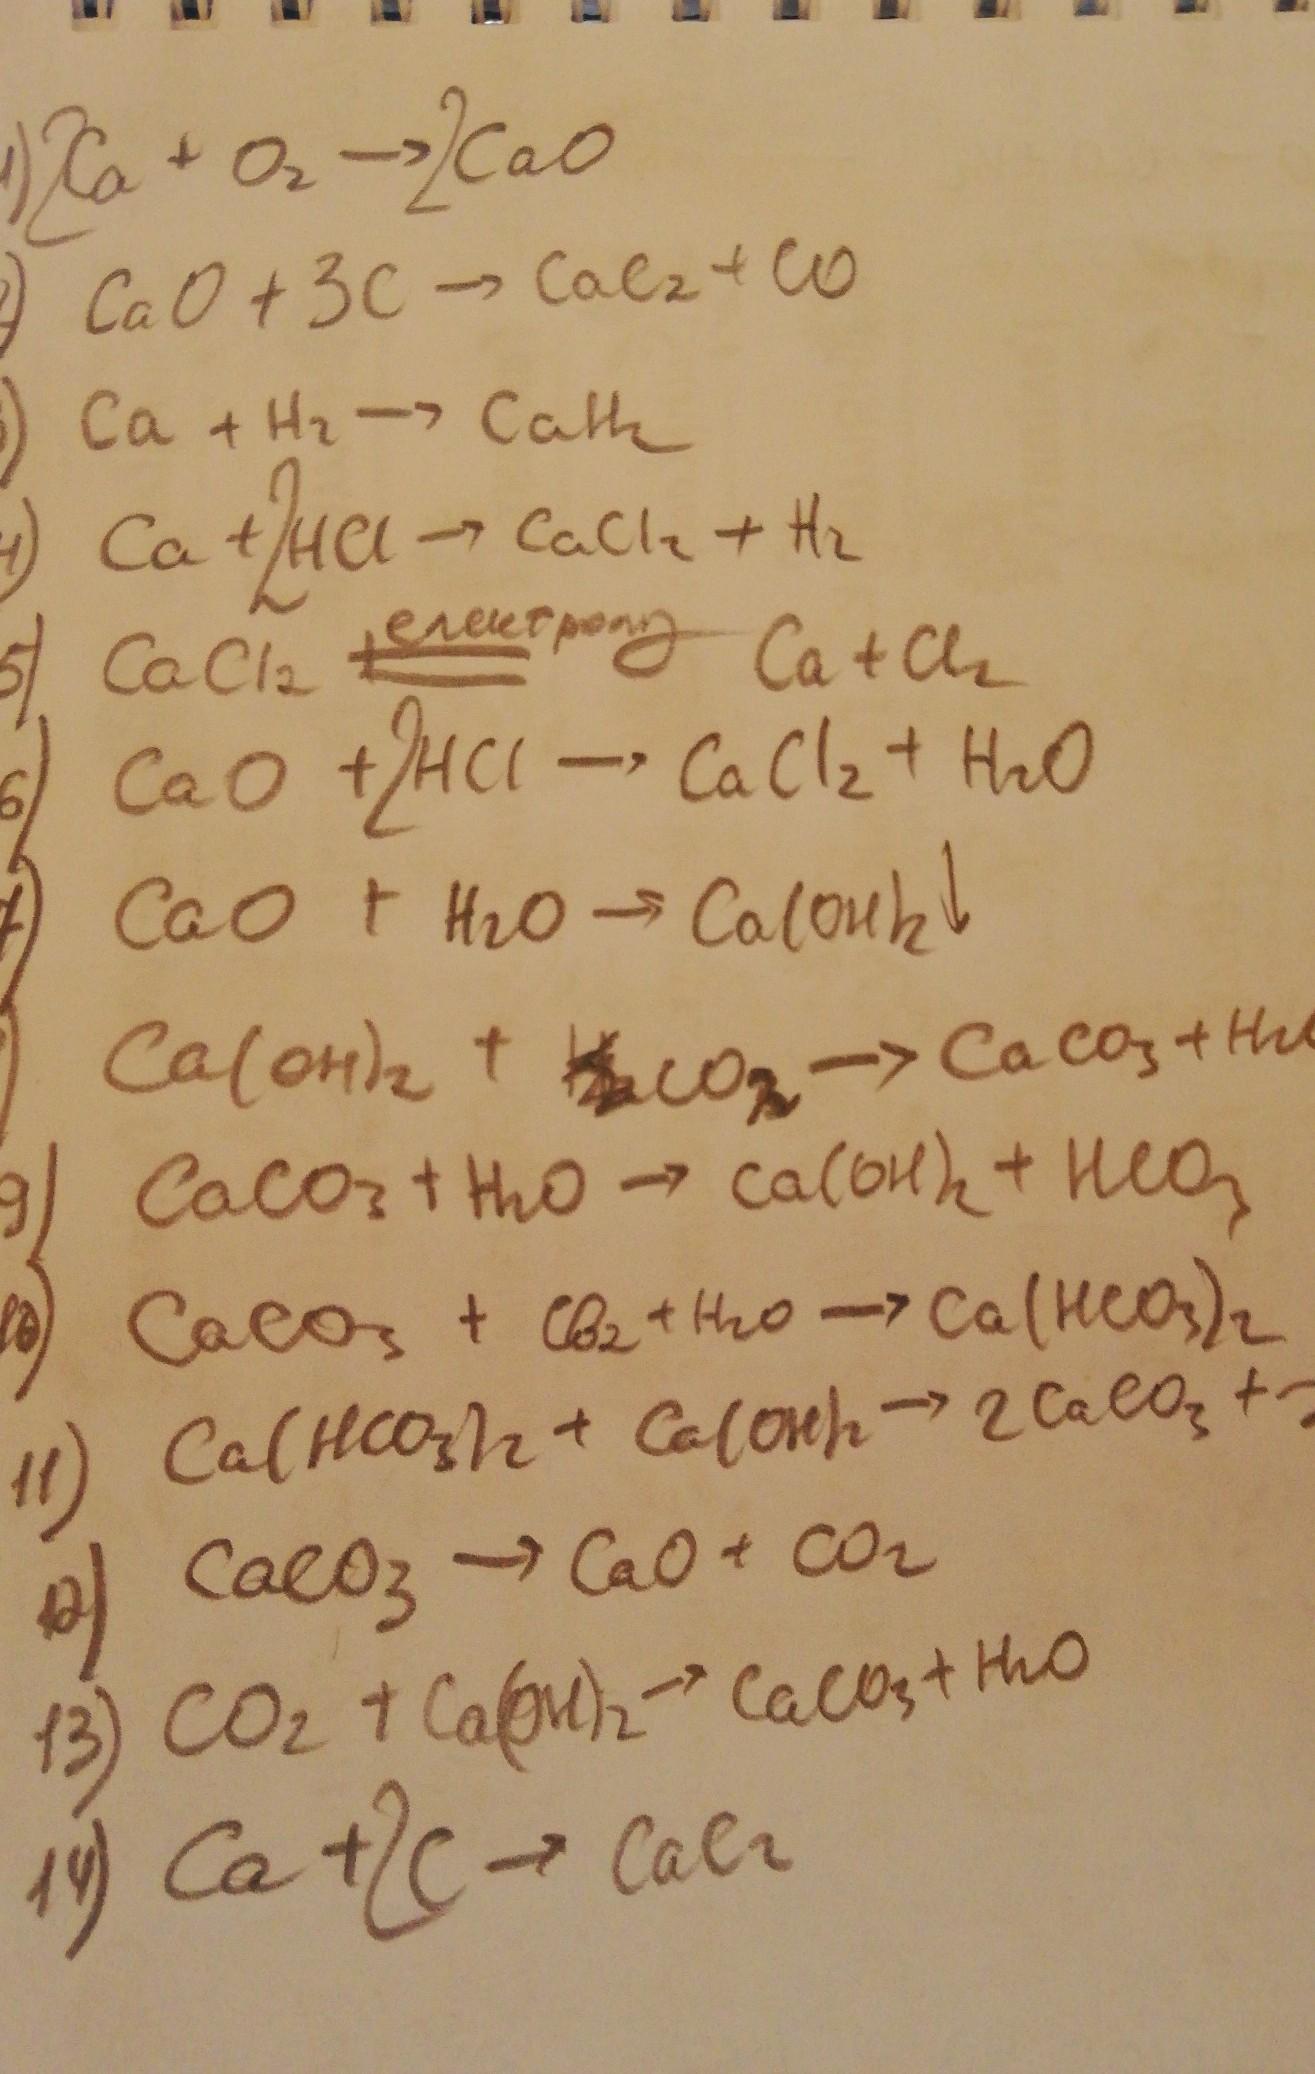 1) 2Ca + O2 → 2CaO
2) CaO + 3C → CaC2 + CO
3) Ca + H2 → CaH2
4) Ca + 2HCl → CaCl2 + H2
5) CaCl2 електроліз Ca + Cl2
6) CaO + 2HCl → CaCl2 + H2O
7) CaO + H2O → Ca(OH)2↓
) Ca(OH)2 + CO2 → CaCO3 + H2O
9) CaCO3 + H2O → Ca(OH)2 + HCO3
10) CaCO3 + CO2 + H2O → Ca(HCO3)2
11) Ca(HCO3)2 + Ca(OH)2 → 2CaCO3 +
12) CaCO3 → CaO + CO2
13) CO2 + Ca(OH)2 → CaCO3 + H2O
14) Ca + 2C → CaC2